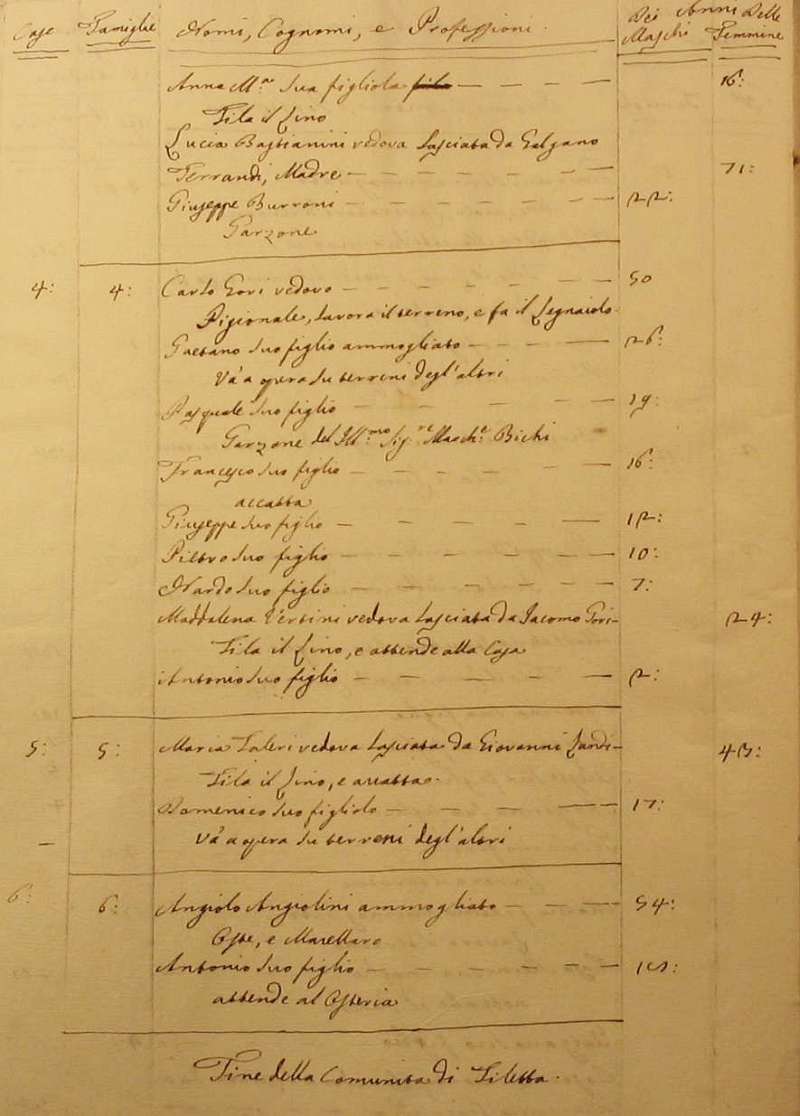 Case Famiglie Nomi, Cognomi, e Professioni. Dei Maschi Anni Delle Femmine
Anna M.ª sua figliola fila 16:
Fila il Lino
Lucia Bastianini vedova lasciata da Galgano
Ferrandi, Madre 71:
Giuseppe Burroni 22:
Garzone
4: 4: Carlo Gori vedovo 50
Pigionale, lavora il terreno, e fa il Legnaiolo
Gaetano suo figlio ammogliato 26:
Va' a opera su terreni degl'altri
Pasquale suo figlio 19:
Garzone del Ill.mo Sig.re March.e Bichi
Francesco suo figlio 16:
accatta
Giuseppe suo figlio 12:
Pietro suo figlio 10:
Nardo suo figlio 7:
Maddalena vedova lasciata da Jacomo Gori 24:
Fila il Lino, e attende alla Casa
Antonio suo figlio 2:
5: 5: Maria vedova lasciata da Giovanni Landi 43:
Fila il Lino, e accatta.
Domenico suo figliolo 17:
Va' a opera su terreni degl'altri
6: 6: Angiolo Angiolini ammogliato 54:
Oste, e Macellaro
Antonio suo figlio
attende al Osteria
Fine della Comunita di Filetta.